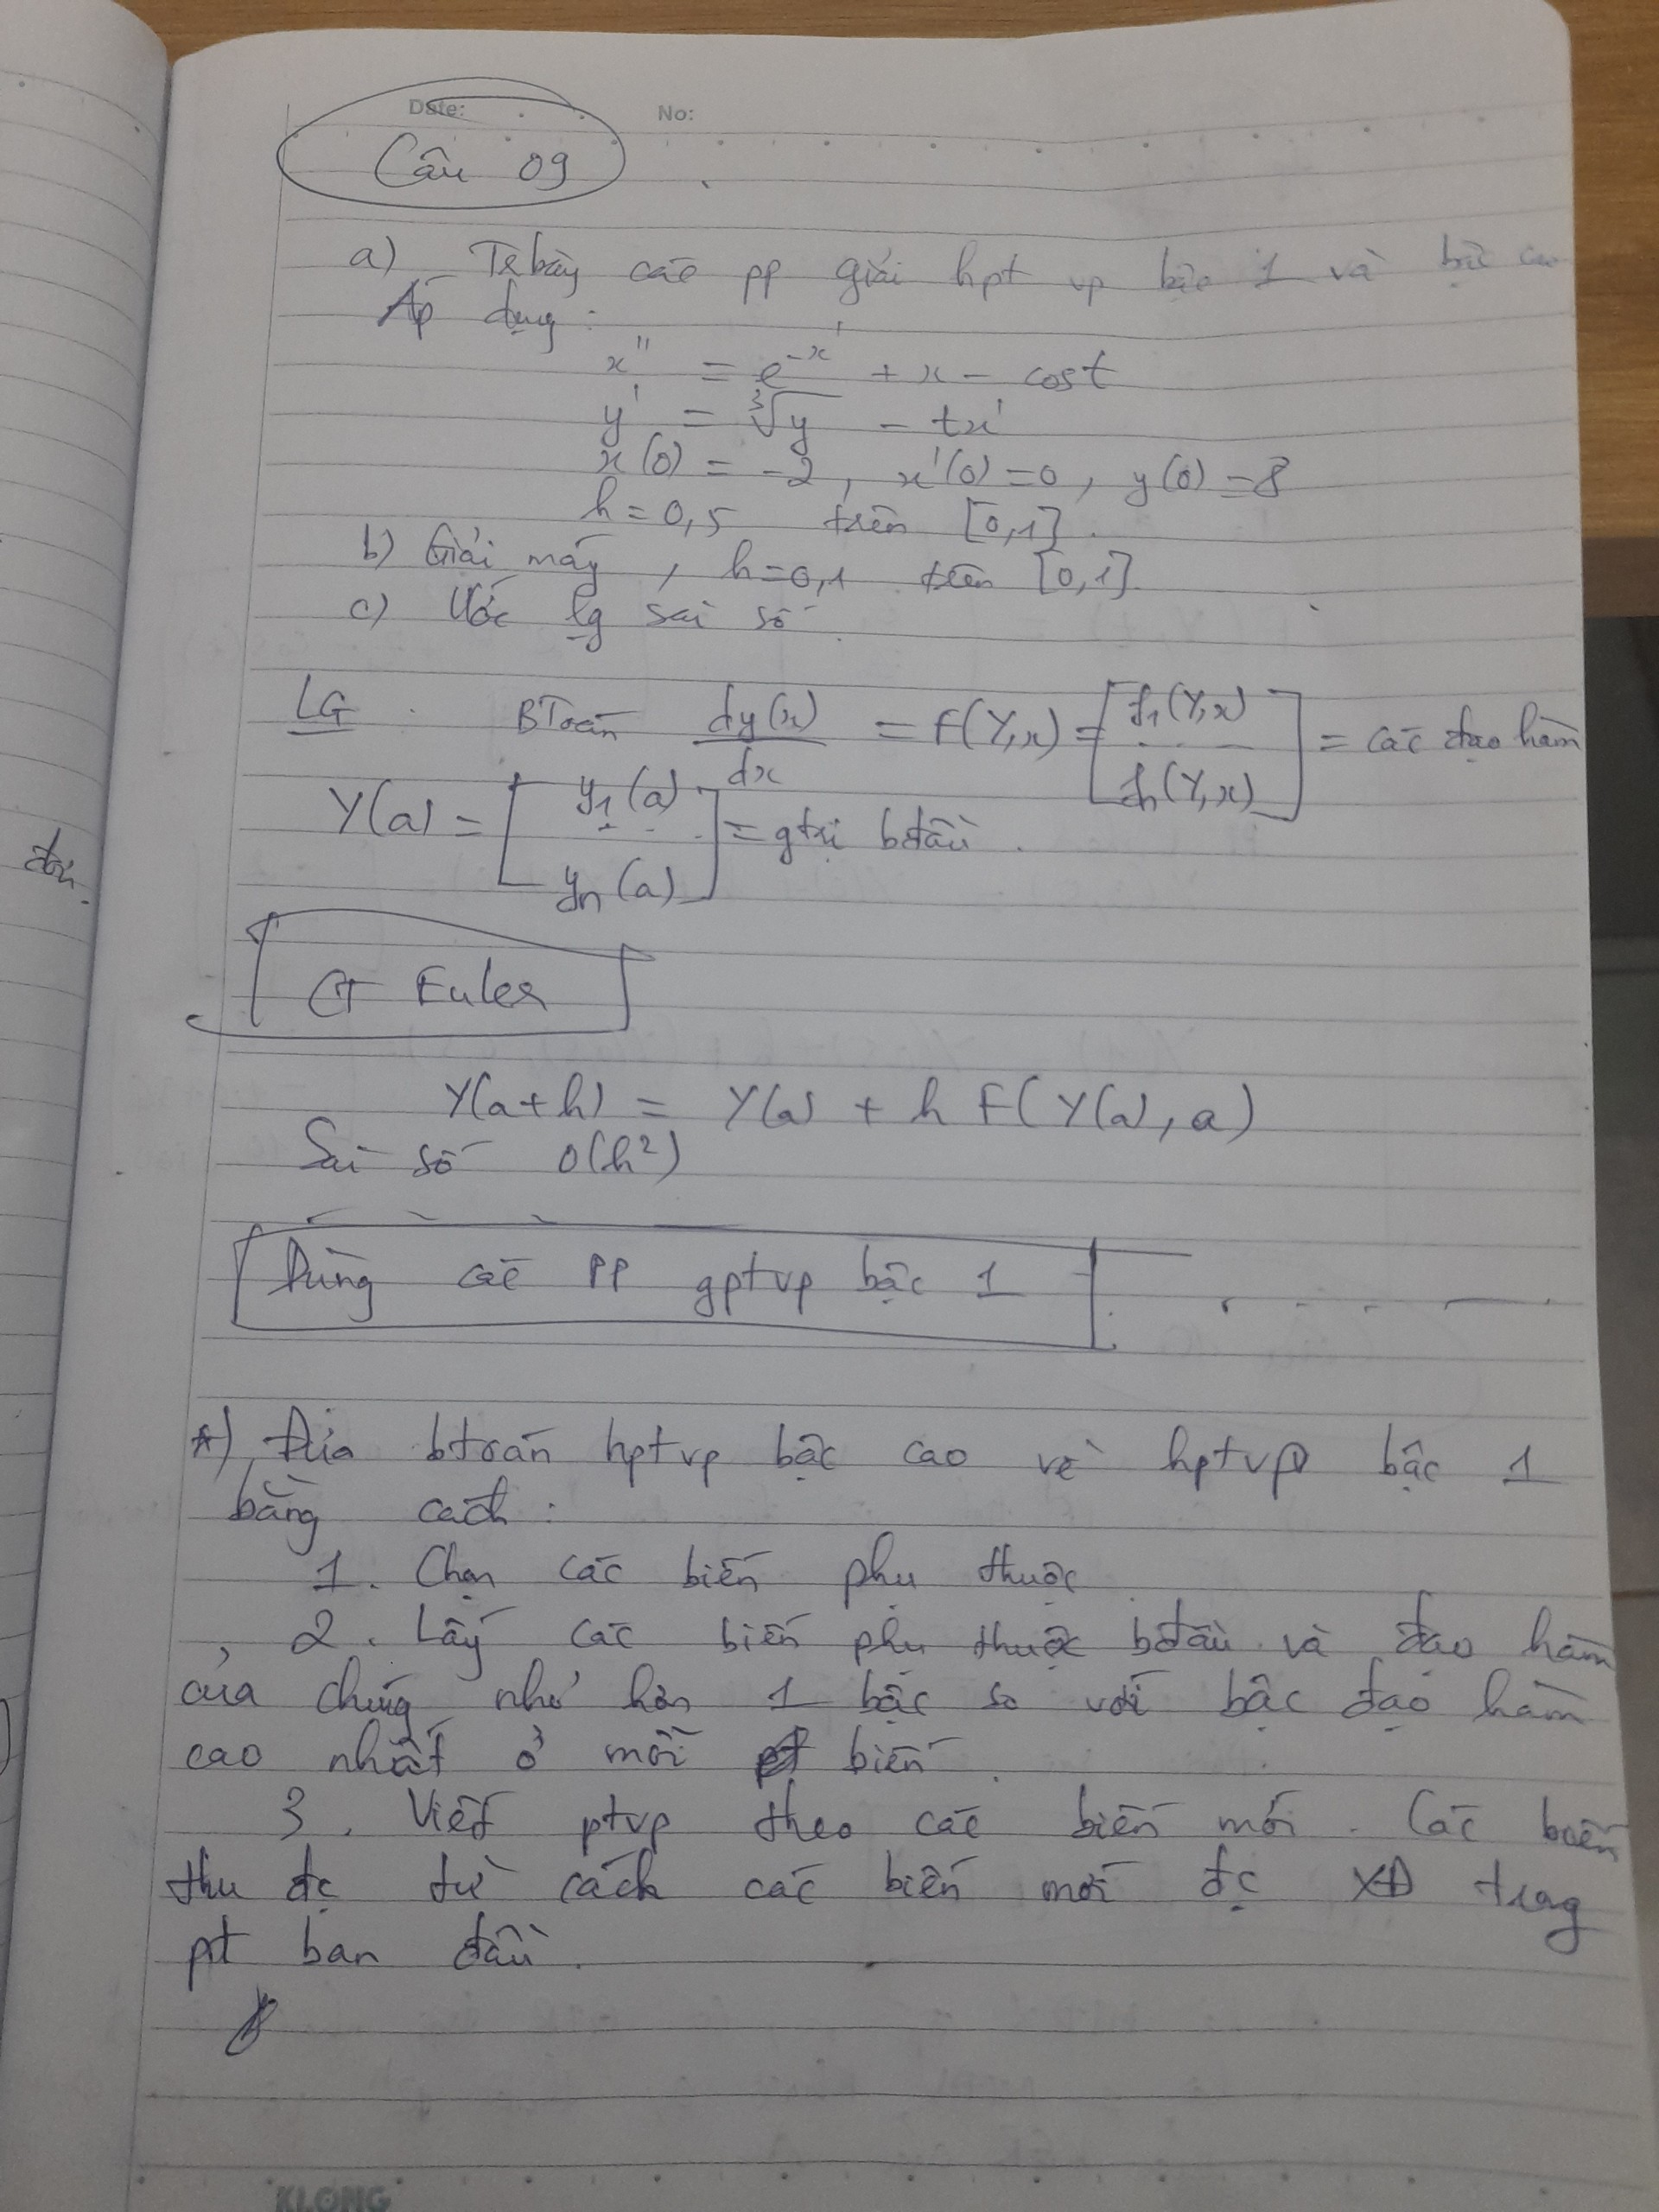 Date: No:
Câu 09
a) Trbày các pp giải hpt vp bậc 1 và bậc cao
Áp dụng:
x'' = e^{-x'} + x - cost
y' = ∛y - tx'
x(0) = -2, x'(0) = 0, y(0) = 8
h = 0,5 trên [0,1].
b) Giải máy, h=0,1 trên [0,1].
c) Ước lg sai số.
LG. BToán dy(x)/dx = F(Y,x) = [f1(Y,x) ... fn(Y,x)] = các đạo hàm
Y(a) = [y1(a) ... yn(a)] = gtrị bđầu.
CT Euler
Y(a+h) = Y(a) + h F(Y(a), a)
Sai số O(h²)
Dùng các PP gptvp bậc 1
*) Đưa btoán hptvp bậc cao về hptvp bậc 1
bằng cách:
1. Chọn các biến phụ thuộc
2. Lấy các biến phụ thuộc bđầu và đạo hàm
của chúng nhỏ hơn 1 bậc so với bậc đạo hàm
cao nhất ở mỗi biến.
3. Viết ptvp theo các biến mới. Các
thu đc từ cách các biến mới đc XĐ trong
pt ban đầu.
đơn.
KLONG